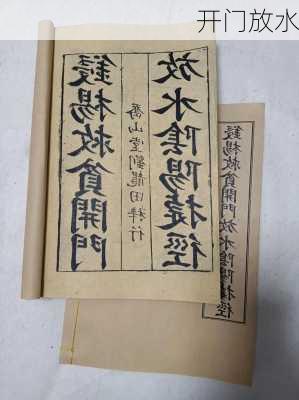 开门放水
鋟楊救貧開門
喬山堂劉龍田梓行
放水陰陽捷徑
鋟楊救貧開門放水陰陽捷徑